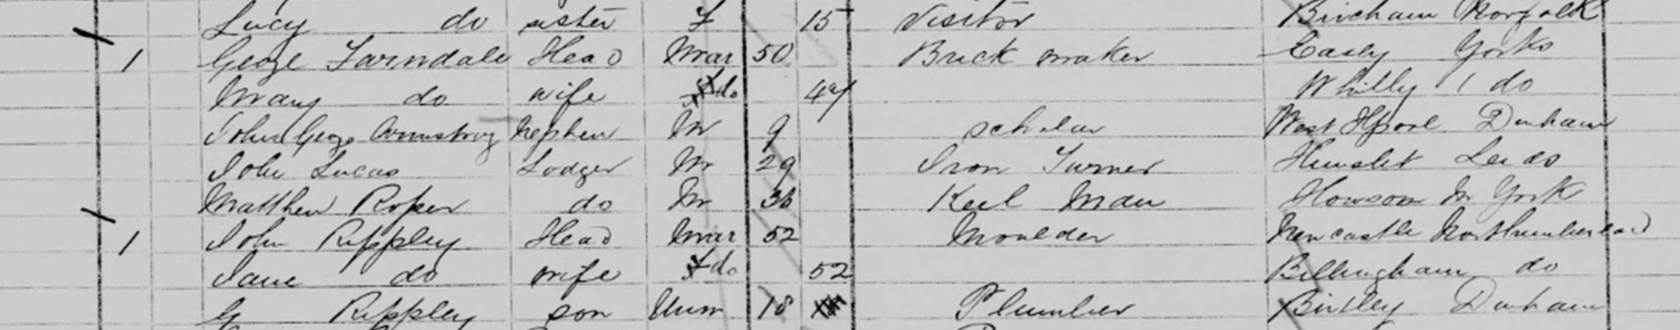 Lucy do sister F 15 Visitor Bircham Norfolk
1 George Farndale Head Mar 50 Brick maker Easby Yorks
Mary do wife do 47 Whitby do
John Geoge Armstrong Nephew M 9 scholar West Hpool Durham
John Lucas Lodger M 29 Iron Turner Hunslet Leeds
Matthew Roper do M Keel Man York
1 John Rippley Head Mar 52 Moulder Newcastle Northumberland
Jane do wife do 52 Billingham do
G Rippley son Unm 18 Plumber Birtley Durham